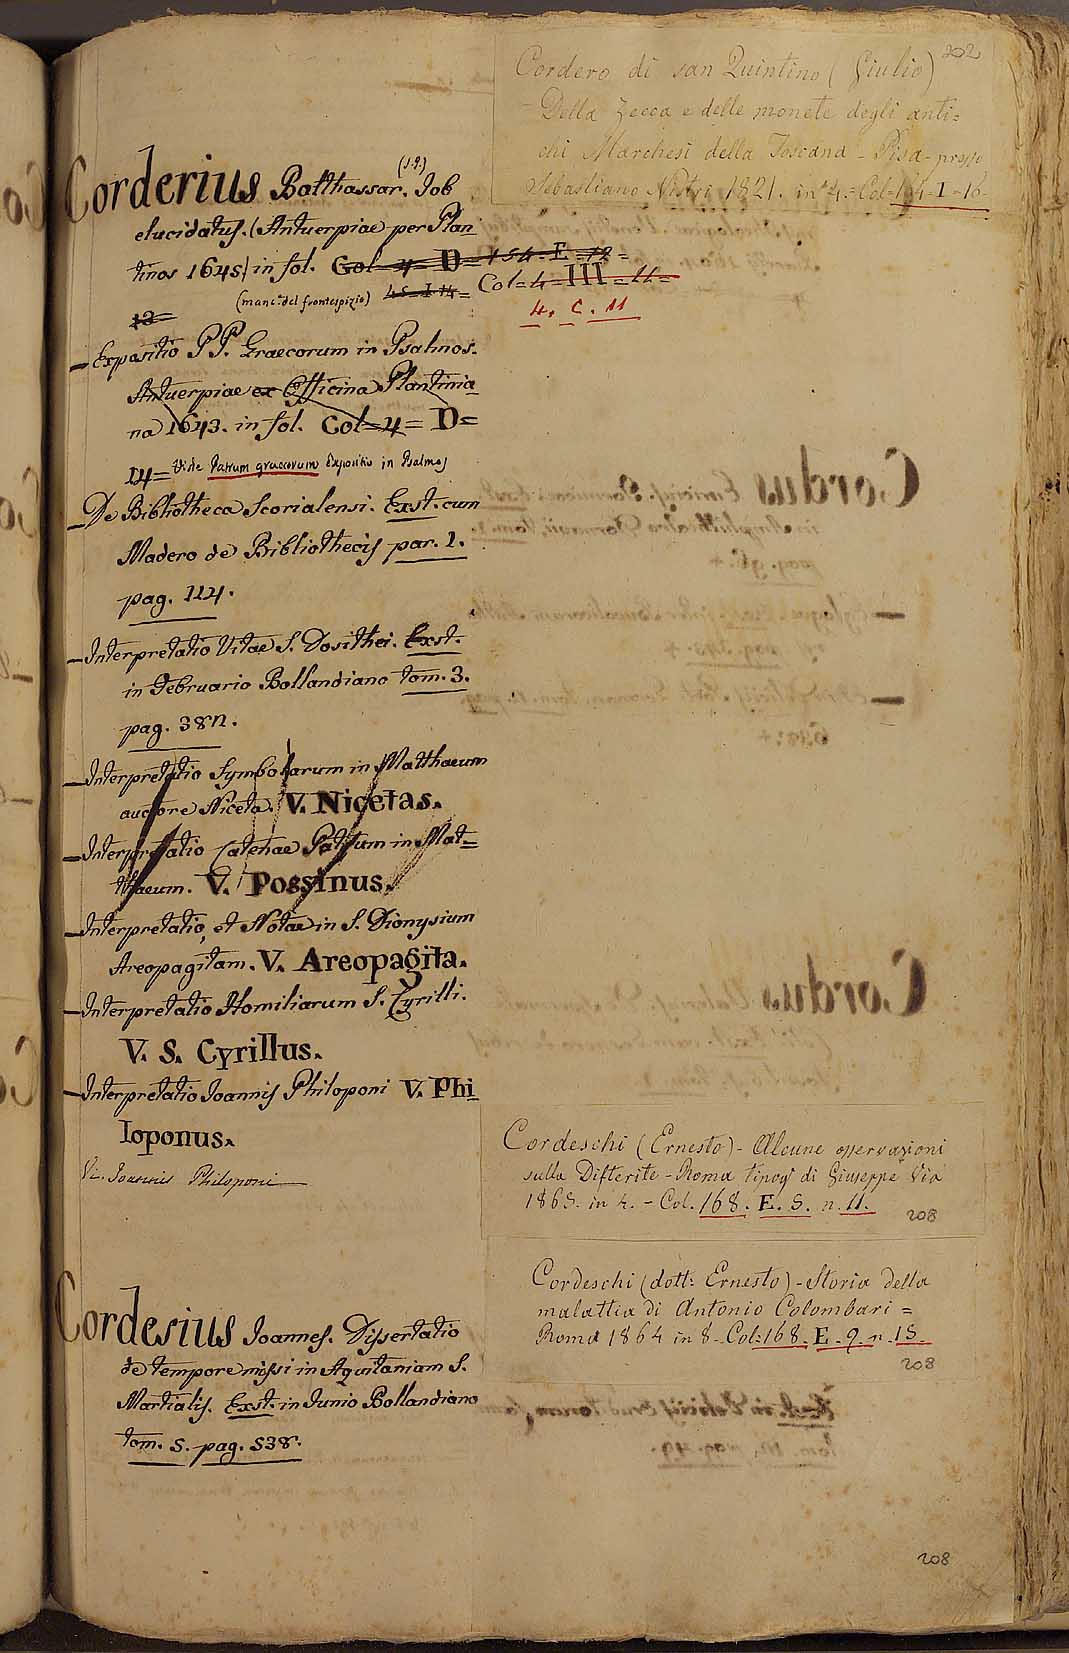 202
Cordero di san Quintino (Giulio)
- Della Zecca e delle monete degli anti=
chi Marchesi della Toscana - Pisa - presso
Sebastiano Nistri 1821. in 4. = Col = 164 - I - 16
Corderius Balthassar. (S.J.) Job
elucidatus. (Antuerpiae per Plan
tinos 1645) in fol. Col = 4 = D = 154 = E = 12 =
(manc.e del frontespizio) 45 = I 14 = Col = 4 = III = 11 =
13 =
4. C. 11
- Expositio P P. Graecorum in Psalmos.
Antuerpiae ex Officina Plantinia
na 1643. in fol. Col = 4 = D =
14 = Vide Patrum graecorum Expositio in Psalmos
- De Bibliotheca Scorialensi. Exst. cum
Madero de Bibliothecis par. 1.
pag. 114.
- Interpretatio Vitae S. Dosithei. Exst.
in Februario Bollandiano tom. 3.
pag. 38n.
- Interpretatio Symbolarum in Matthaeum
auctore Niceta. V. Nicetas.
- Interpretatio Catenae Patrum in Mat=
thaeum. V. Possinus.
- Interpretatio, et Notae in S. Dionysium
Areopagitam. V. Areopagita.
- Interpretatio Homiliarum S. Cyrilli.
V. S. Cyrillus.
- Interpretatio Joannis Philoponi V. Phi
loponus.
Vi. Joannis Philoponi
Corderius Joannes. Dissertatio
de tempore missi in Aquitaniam S.
Martialis. Exst. in Junio Bollandiano
tom. 5. pag. 538.
Cordeschi (Ernesto) - Alcune osservazioni
sulla Difterite - Roma tipog. di Giuseppe Via
1865. in 4. - Col. 168. E. 5. n. 11.
208
Cordeschi (dott: Ernesto) - Storia della
malattia di Antonio Colombari =
Roma 1864 in 8 - Col: 168. E - 9 - n - 15 -
208
208